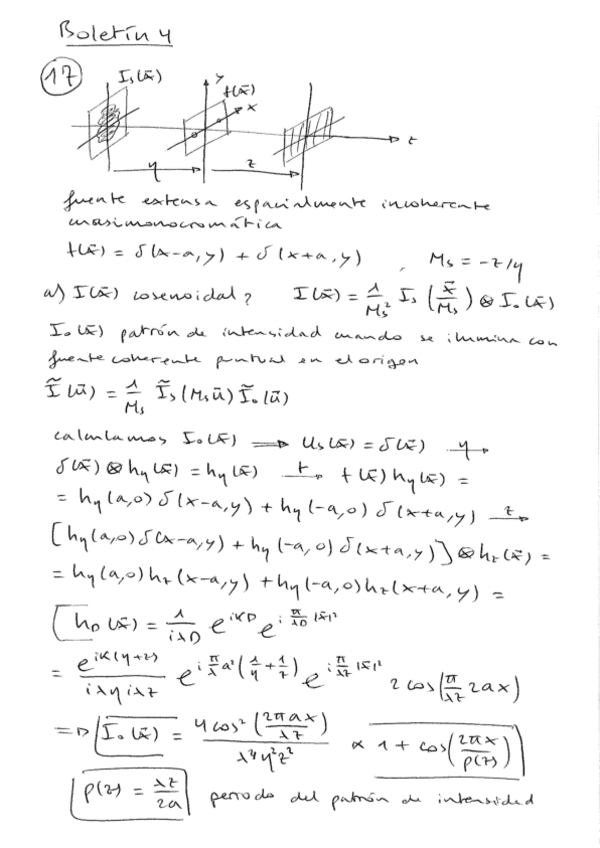 Boletín 4
17
I₁(x̄) y t(x̄) x z
y z
fuente extensa espacialmente incoherente
cuasimonocromática
t(x̄) = δ(x-a,y) + δ(x+a,y) , Ms = -z/y
a) I(x̄) cosenoidal? I(x̄) = 1/Ms² Is (x̄/Ms) ⊗ I₀(x̄)
I₀(x̄) patrón de intensidad cuando se ilumina con
fuente coherente puntual en el origen
Ĩ(ū) = 1/Ms Ĩs(Msū) Ĩ₀(ū)
calculamos I₀(x̄) ⟹ Us(x̄) = δ(x̄) y→
δ(x̄) ⊗ hy(x̄) = hy(x̄) t→ t(x̄) hy(x̄) =
= hy(a,0) δ(x-a,y) + hy(-a,0) δ(x+a,y) z→
[hy(a,0) δ(x-a,y) + hy(-a,0) δ(x+a,y)] ⊗ hz(x̄) =
= hy(a,0) hz(x-a,y) + hy(-a,0) hz(x+a,y) =
[h_D(x̄) = 1/(iλD) e^{iKD} e^{i π/(λD) |x̄|²}
= e^{iK(y+z)}/(iλy iλz) e^{i π/λ a²(1/y + 1/z)} e^{i π/(λz) |x̄|²} 2 cos(π/(λz) 2ax)
⟹ I₀(x̄) = 4 cos²(2πax/(λz)) / (λ⁴y²z²) ∝ 1 + cos(2πx/p(z))
p(z) = λz/2a periodo del patrón de intensidad